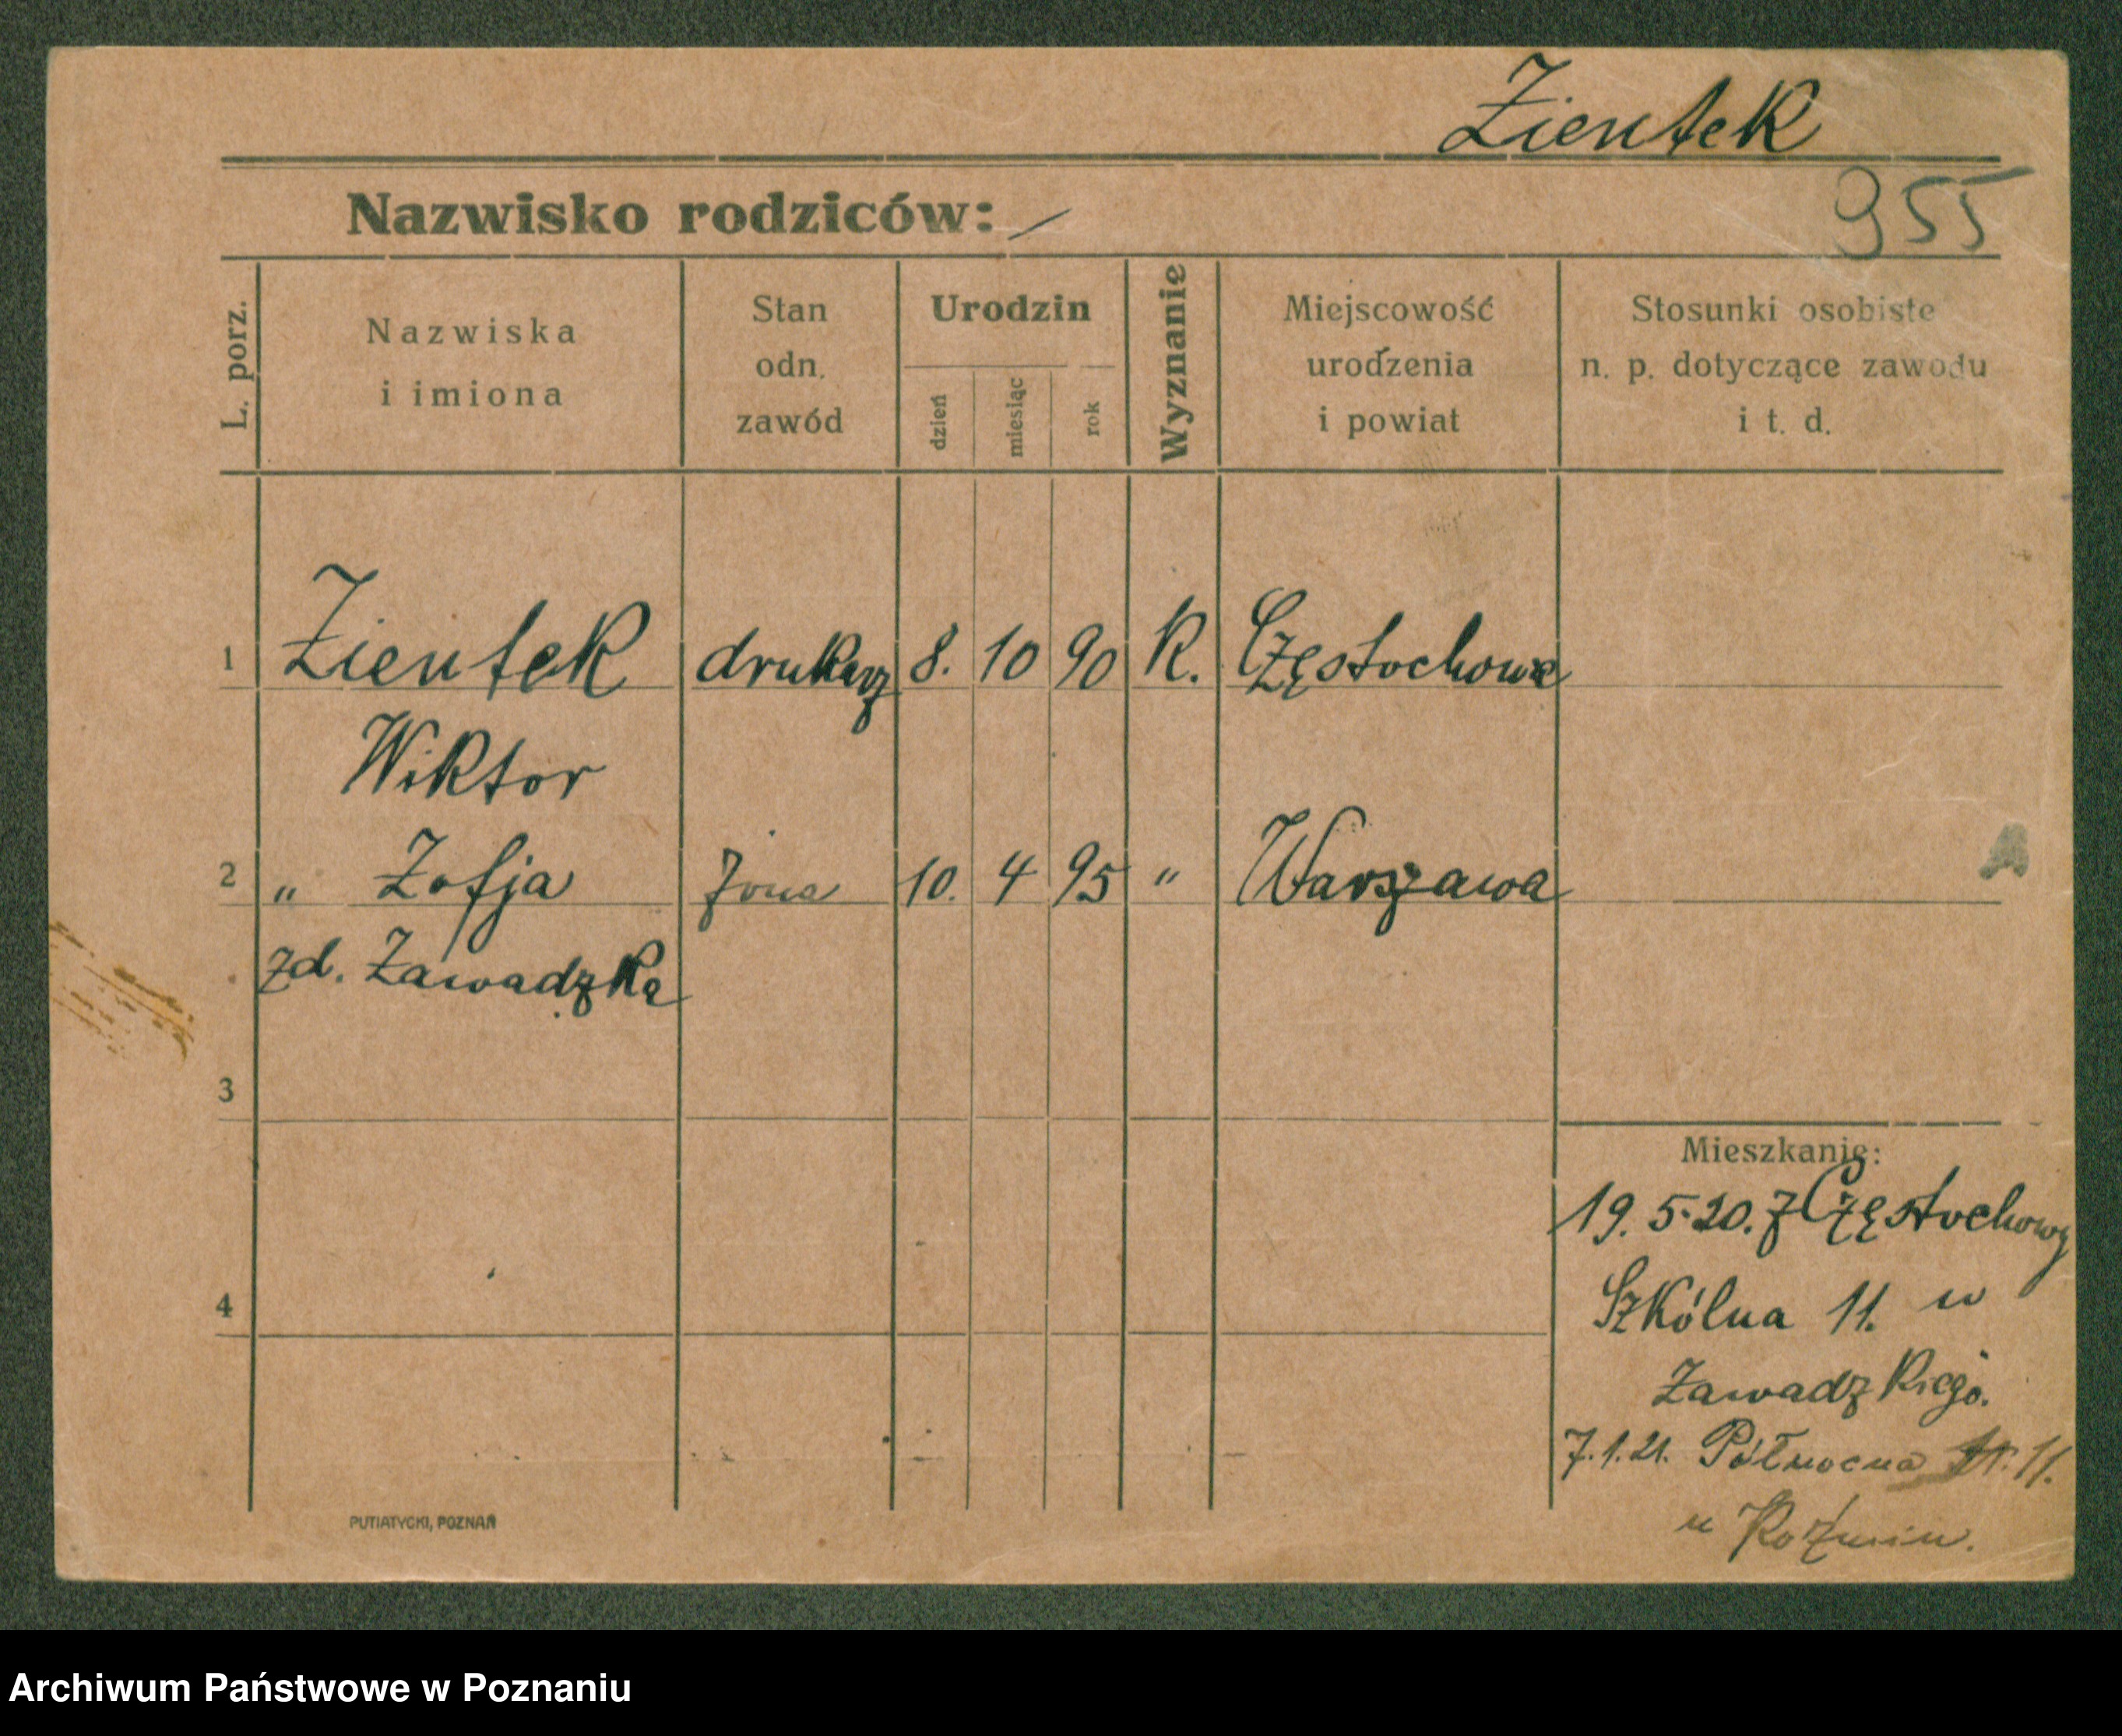 Zientek
955
Nazwisko rodziców: /
L. porz.
Nazwiska
i imiona
Stan
odn.
zawód
Urodzin
dzień
miesiąc
rok
Wyznanie
Miejscowość
urodzenia
i powiat
Stosunki osobiste
n. p. dotyczące zawodu
i t. d.
1 Zientek drukarz 8. 10 90 K. Częstochowa
Wiktor
2 „ Zofja żona 10. 4 95 „ Warszawa
zd. Zawadzka
3
Mieszkanie:
19. 5. 20. z Częstochowy
4
Szkólna 11. u
Zawadzkiego.
7. 1. 21. Północna 11.
u Koźmin.
PUTIATYCKI, POZNAŃ
Archiwum Państwowe w Poznaniu